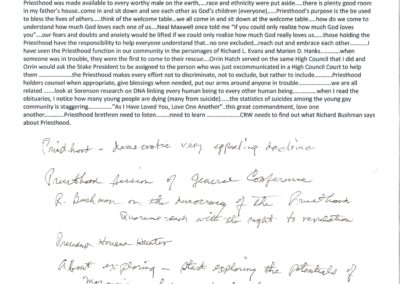 Priesthood was made available to every worthy male on the earth,....race and ethnicity were put aside....there is plenty good room
in my father's house...come in and sit down and see each other as God's children (everyone)....Priesthood's purpose is the be used
to bless the lives of others.....think of the table welcome...we all come in and sit down at the welcome table....how do we come to
understand how much God loves each one of us...Neal Maxwell once told me "If you could only realize how much God loves
you"....our fears and doubts and anxiety would be lifted if we could only realize how much God really loves us....those holding the
Priesthood have the responsibility to help everyone understand that...no one excluded...reach out and embrace each other............I
have seen the Priesthood function in our community in the personages of Richard L. Evans and Marion D. Hanks...........when
someone was in trouble, they were the first to come to their rescue....Orrin Hatch served on the same High Council that I did and
Orrin would ask the Stake President to be assigned to the person who was just excommunicated in a High Council Court to help
them ................the Priesthood makes every effort not to discriminate, not to exclude, but rather to Include............Priesthood
holders counsel when appropriate, give blessings when needed, put our arms around anyone in trouble............we are all
related ......look at Sorenson research on DNA linking every human being to every other human being............when I read the
obituaries, I notice how many young people are dying (many from suicide).....the statistics of suicides among the young gay
community is staggering............"As I Have Loved You, Love One Another"..this great commandment, love one
another..........Priesthood brethren need to listen.........need to learn ..............CRW needs to find out what Richard Bushman says
about Priesthood.
Priesthood - democratic very appealing doctrine
Priesthood Session of General Conference
R. Bushman on the democracy of the Priesthood
Quorums each with the right to revelation
About exploring - start exploring the potentials of